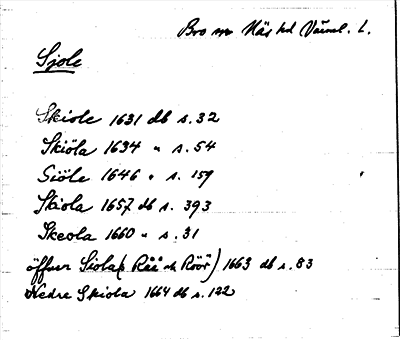 Bro sn Näs hd Värml. L.
Sjole
Skiole 1631 db s. 32
Skiöla 1634 " s. 54
Siöle 1646 " s. 159
Skiola 1657 db s. 393
Skeola 1660 " s. 31
öffver Siola (Råå och Röör) 1663 db s. 83
Nedre Skiola 1664 db s. 122